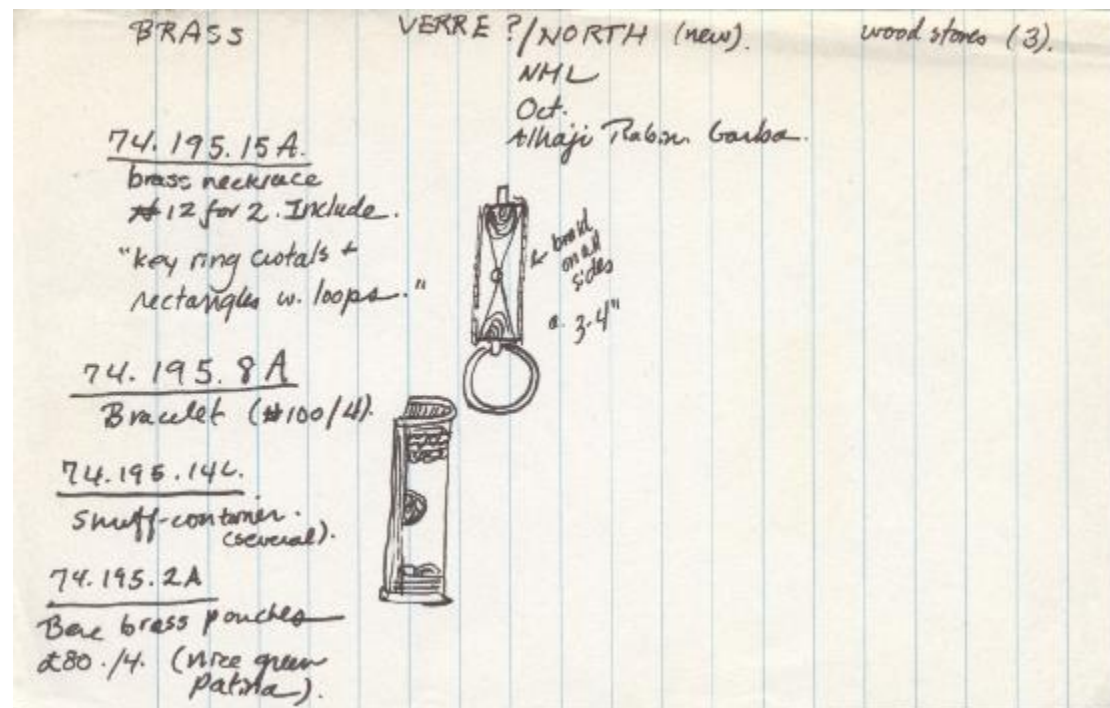 BRASS VERRE ?/NORTH (new). wood stores (3).
NML
Oct.
Alhaji Rabin. Garba.
74.195.15A.
brass necklace
#12 for 2. Include.
"key ring crotals +
rectangles w. loops."
braid
on all
sides
a. 3-4"
74.195.8A
Bracelet (#100/4).
74.195.14L.
Snuff-container.
(several).
74.195.2A
brass pouches
£80./4. (nice green
patina).